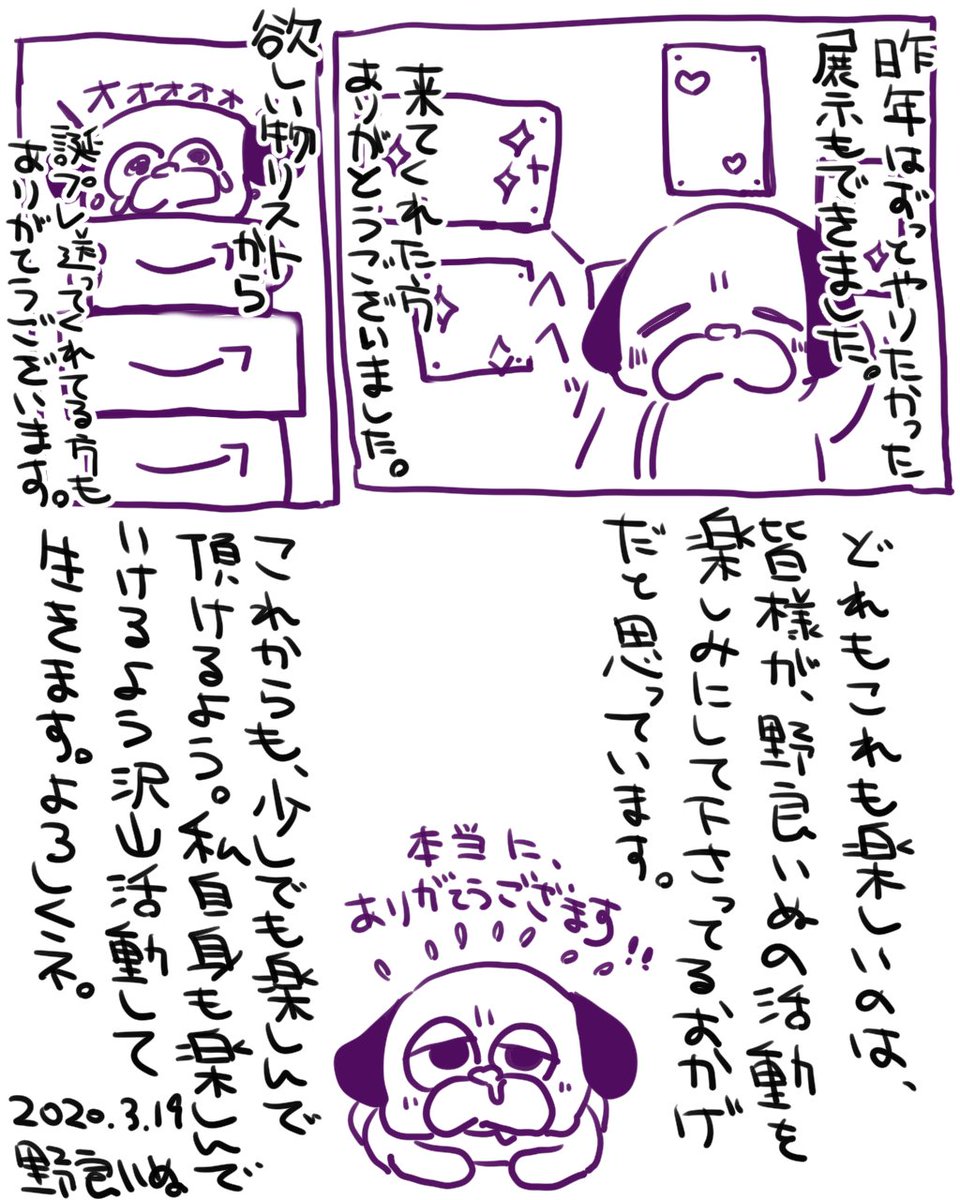 昨年はずってやりたかった
展示もできました。
来てくれた方
ありがとうございました。
欲しい物リストから
オオオオオ
誕プレ送ってくれてる方も
ありがてうございます。
どれもこれも楽しいのは、
皆様が、野良いぬの活動を
楽しみにして下さってる、おかげ
だと思っています。
本当に、
ありがてうございます!!
これからも、少しでも楽しんで
頂けるよう。私自身も楽しんで
いけるよう沢山活動して
生きます。よろしくネ。
2020.3.19
野良いぬ